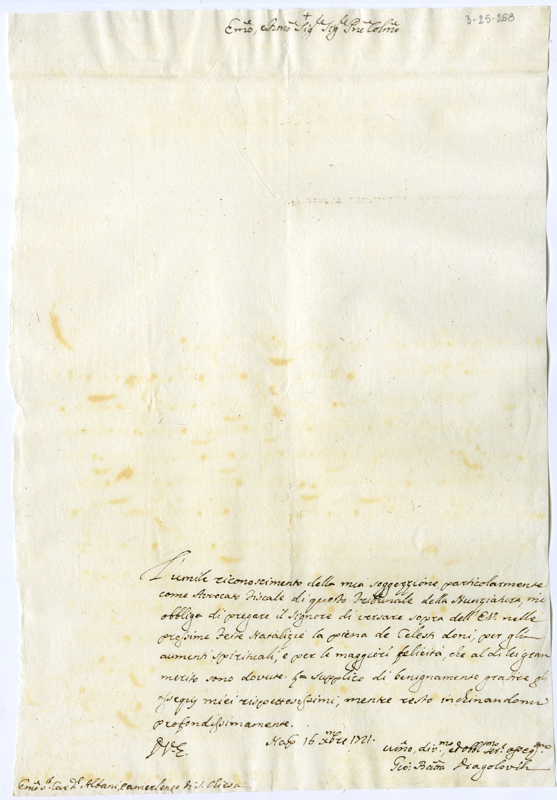 3-25-268
+
Emo, e Rmo Sigre Sigre Prne Colmo
L'umile riconoscimento della mia soggezzione particolarmente
come Avvocato Fiscale di questo Tribunale della Nunziatura, mi
obbliga di pregare il Signore di versare sopra dell'E.V. nelle
prossime Feste Natalizie la piena de Celesti doni, per gli
aumenti spirituali, e per le maggiori felicità, che al di lei gran
merito sono dovute. La supplico di benignamente gradire gli
ossequij miei rispettosissimi, mentre resto inchinandomi
profondissimamente.
D.V.E.
Nap. 16 Xmbre 1721.
Umo, divmo, ed obbmo Sre osseqmo
Gio: Batta Dragolovich
Emo Sr Cardl Albani, Camerlengo di S. Chiesa